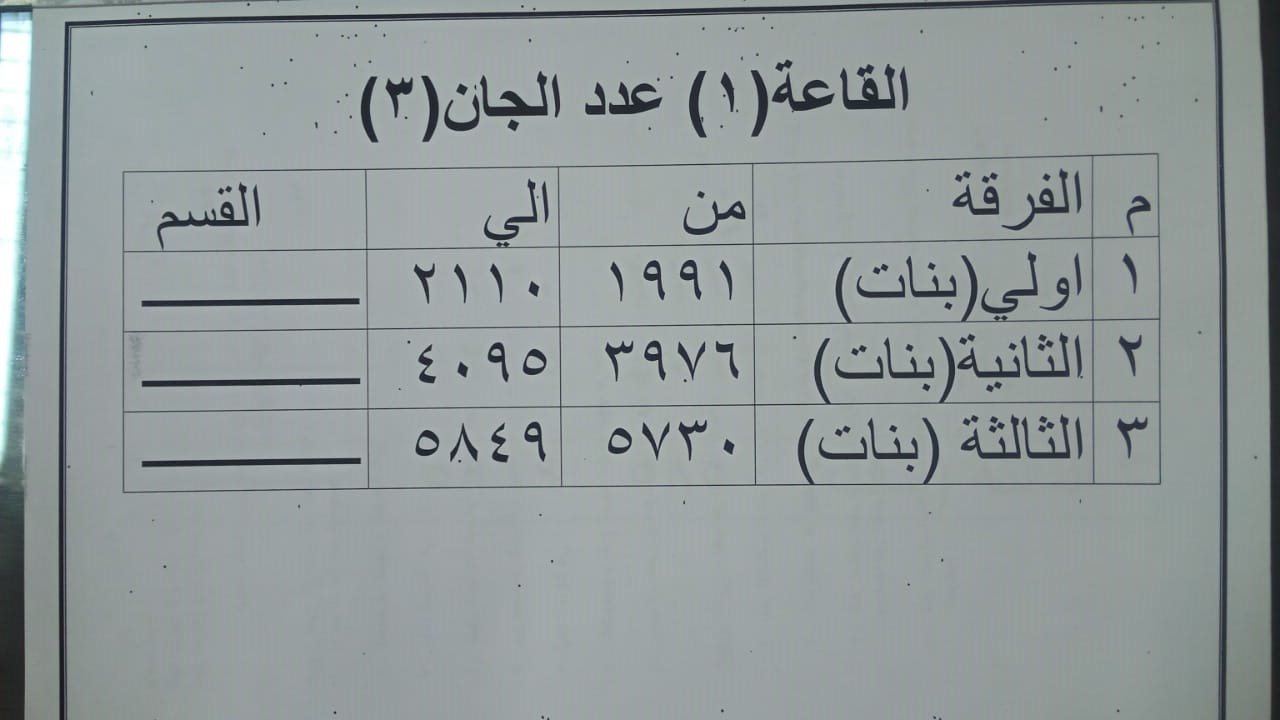 القاعة(١) عدد الجان(٣)
م الفرقة من الي القسم
١ اولي(بنات) ١٩٩١ ٢١١٠
٢ الثانية(بنات) ٣٩٧٦ ٤٠٩٥
٣ الثالثة (بنات) ٥٧٣٠ ٥٨٤٩